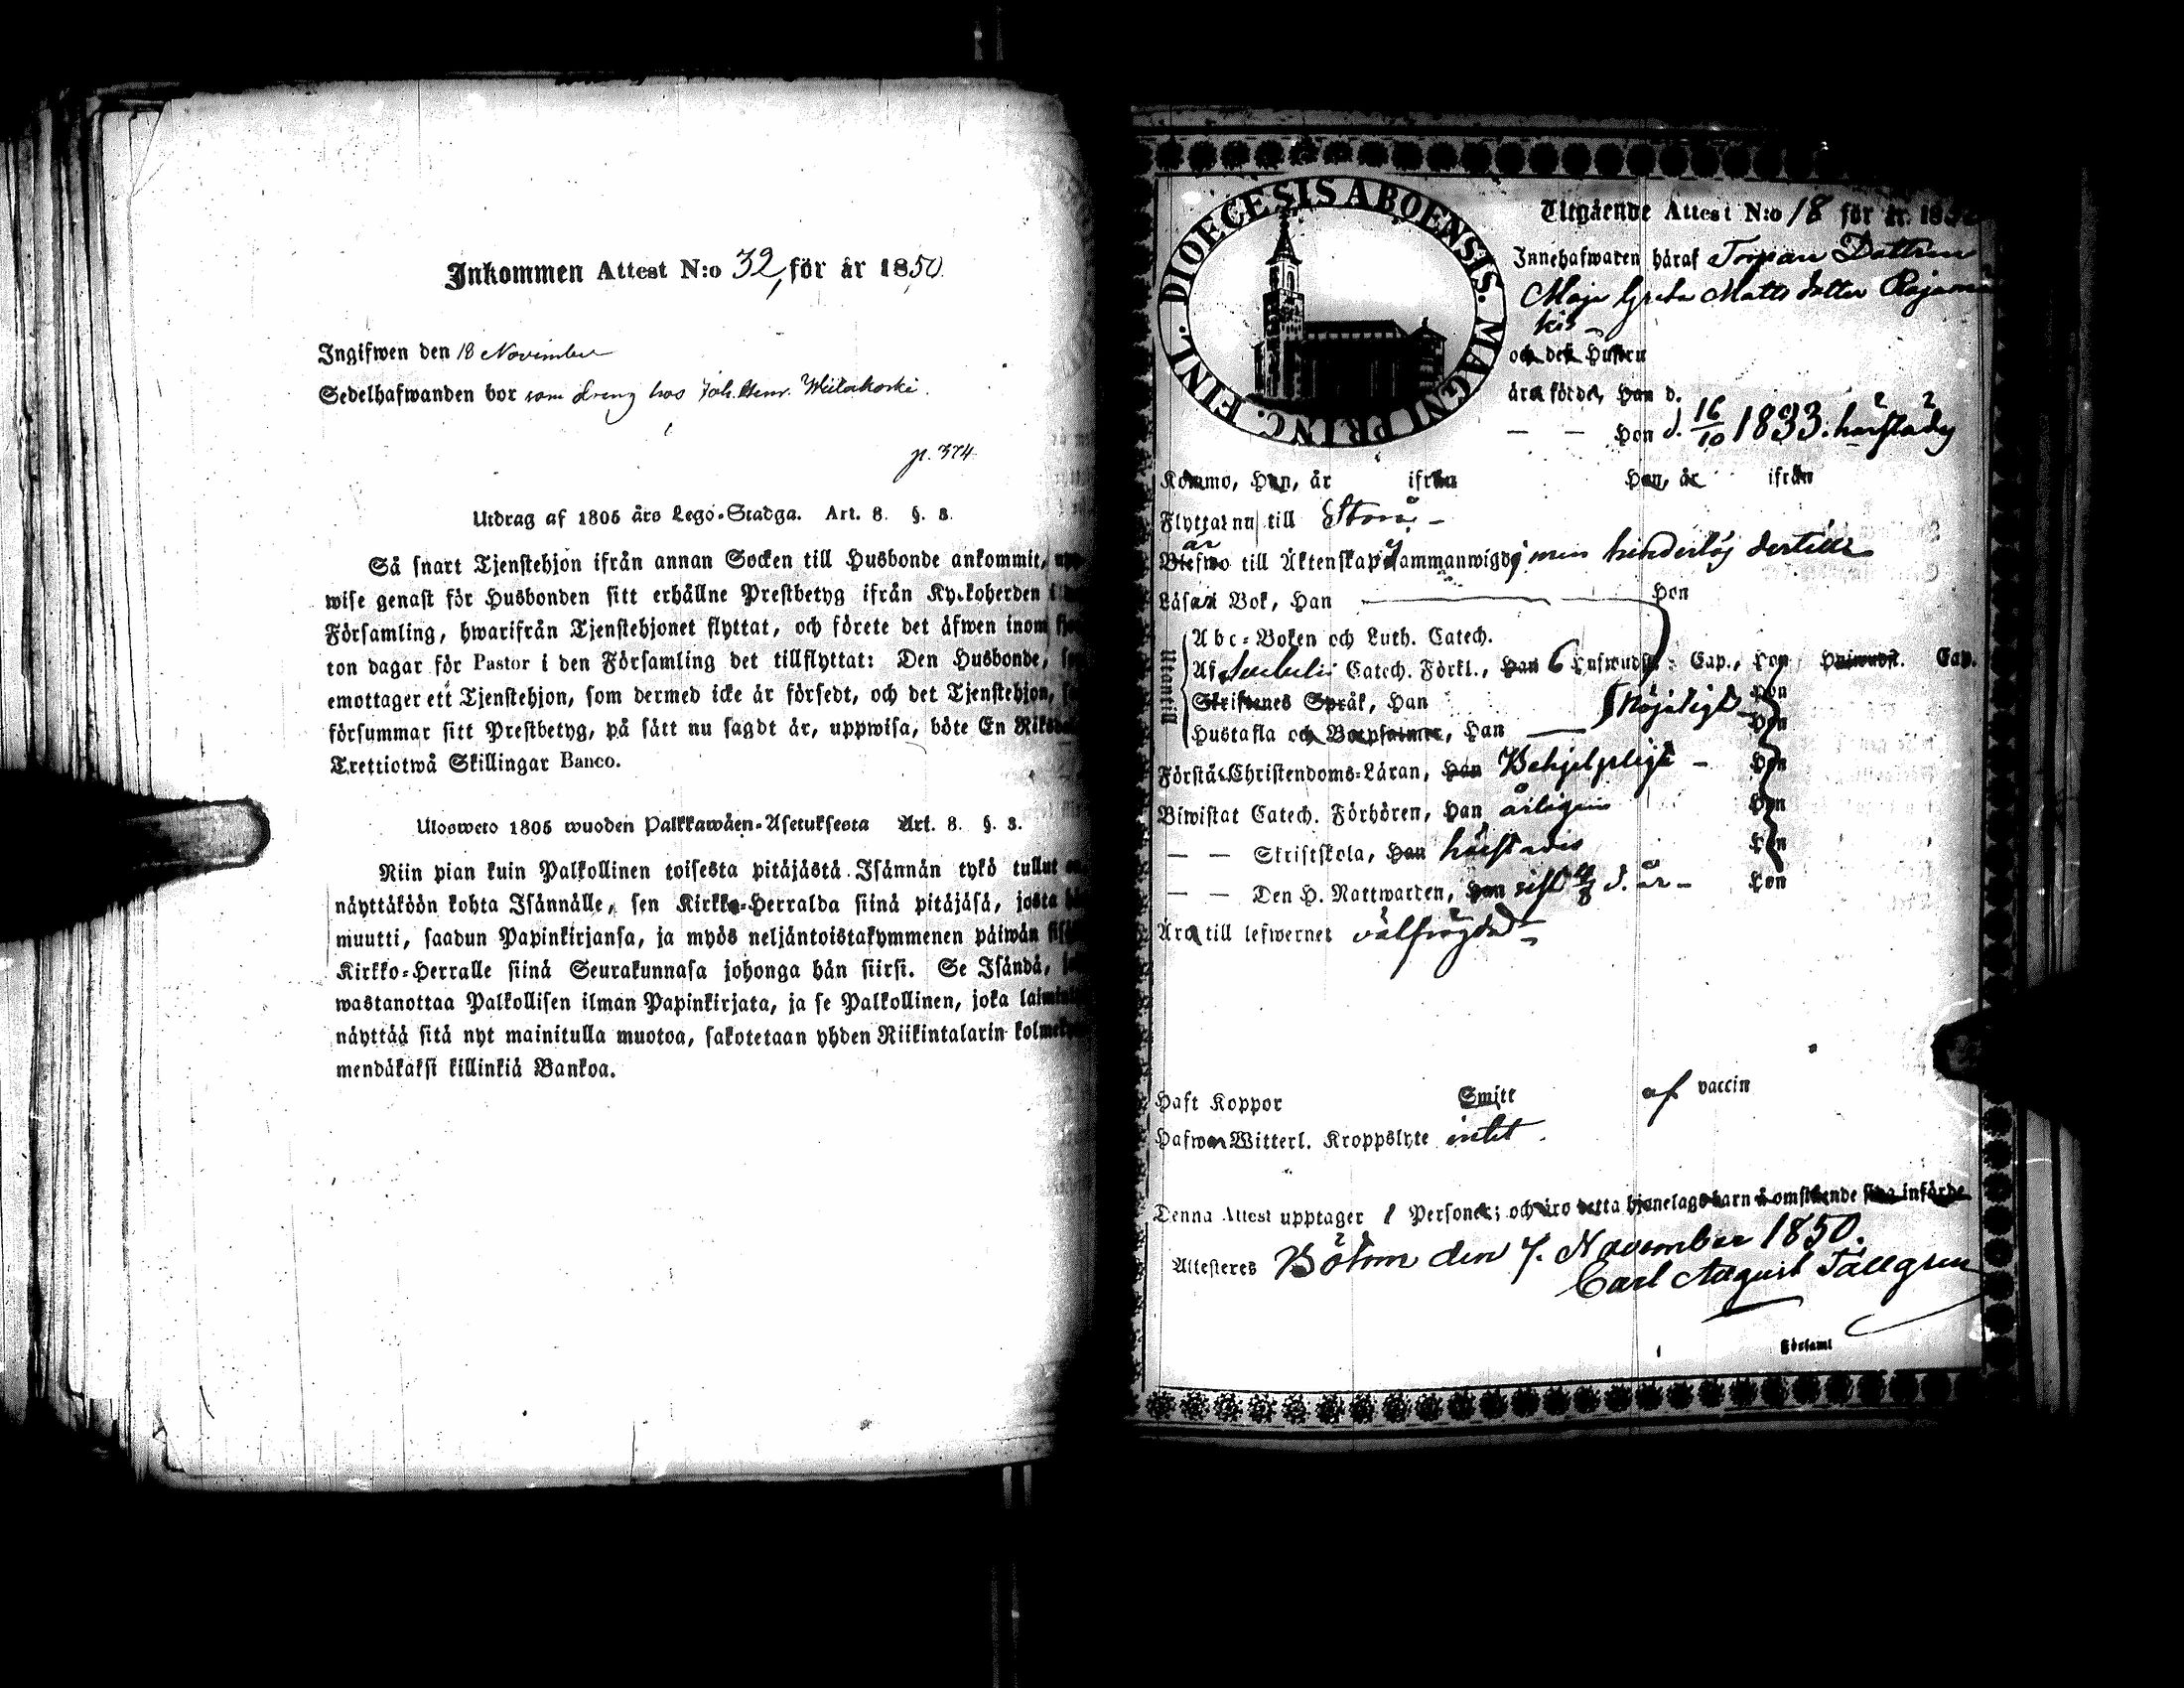 Inkommen Attest N:o 32, för år 1850.
Ingifwen den 18 November
Sedelhafwanden bor som dreng hos Joh. Henr.
p. 374
Utdrag af 1805 års Lego-Stadga. Art. 8. §. 3.
Så snart Tjenstehjon ifrån annan Socken till Husbonde ankommit,
wise genast för Husbonden sitt erhållne Prestbetyg ifrån Kyrkoherden i
Församling, hwarifrån Tjenstehjonet flyttat, och förete det äfwen inom
ton dagar för Pastor i den Församling det tillflyttat: Den Husbonde,
emottager ett Tjenstehjon, som dermed icke är försedt, och det Tjenstehjon,
försummar sitt Prestbetyg, på sätt nu sagdt är, uppwisa, böte En Riksdal
Trettiotwå Skillingar Banco.
Ulosweto 1805 wuoden Palkkawäen-Asetuksesta Art. 8. §. 3.
Niin pian kuin Palkollinen toisesta pitäjästä Isännän tykö tullut on
näyttäköön kohta Isännälle, sen Kirkko-Herralda siinä pitäjäsä, josta
muutti, saadun Papinkirjansa, ja myös neljäntoistakymmenen päiwän
Kirkko-Herralle siinä Seurakunnasa johonga hän siirsi. Se Isändä,
wastanottaa Palkollisen ilman Papinkirjata, ja se Palkollinen, joka
näyttää sitä nyt mainitulla muotoa, sakotetaan yhden Riikintalarin
mendäkaksi killinkiä Bankoa.
DIOECESIS ABOENSIS. MAGNI PRINC. FINL.
Utgående Attest N:o 18 för år 1850
Innehafwaren häraf Torpare Dottren
Maja Greta Matts dotter
och deß Hustru
ära födde, Han d.
— — Hon d. 16/10 1833. härstädes
Kommo, Han, år ifrån Hon, år ifrån
Flyttat nu till
är
Blefwo till Äktenskap sammanwigde men hinderlös dertill
Läsa i Bok, Han Hon
Utantill
Abc-Boken och Luth. Catech.
Af Catech. Förkl., Han 6 Hufwudst. Cap., Hon Hufwudst. Cap.
Skriftenes Språk, Han Hon
Hustafla och Botpsalmer, Han Nöjaktigt Hon
Förstå Christendoms-Läran, Han Behjelpligt — Hon
Biwistat Catech. Förhören, Han årligen Hon
— — Skriftskola, Han härstädes Hon
— — Den H. Nattwarden, Han sist d. år — Hon
Ära till lefwernet välfrägdad
Haft Koppor Smitt af vaccin
Hafwa Witterl. Kroppslyte intet.
Denna Attest upptager 1 Personer; och äro detta hjonelags barn å omstående sida införde
Attesteres Bötom den 7. November 1850.
Carl August Tällgren
Församl